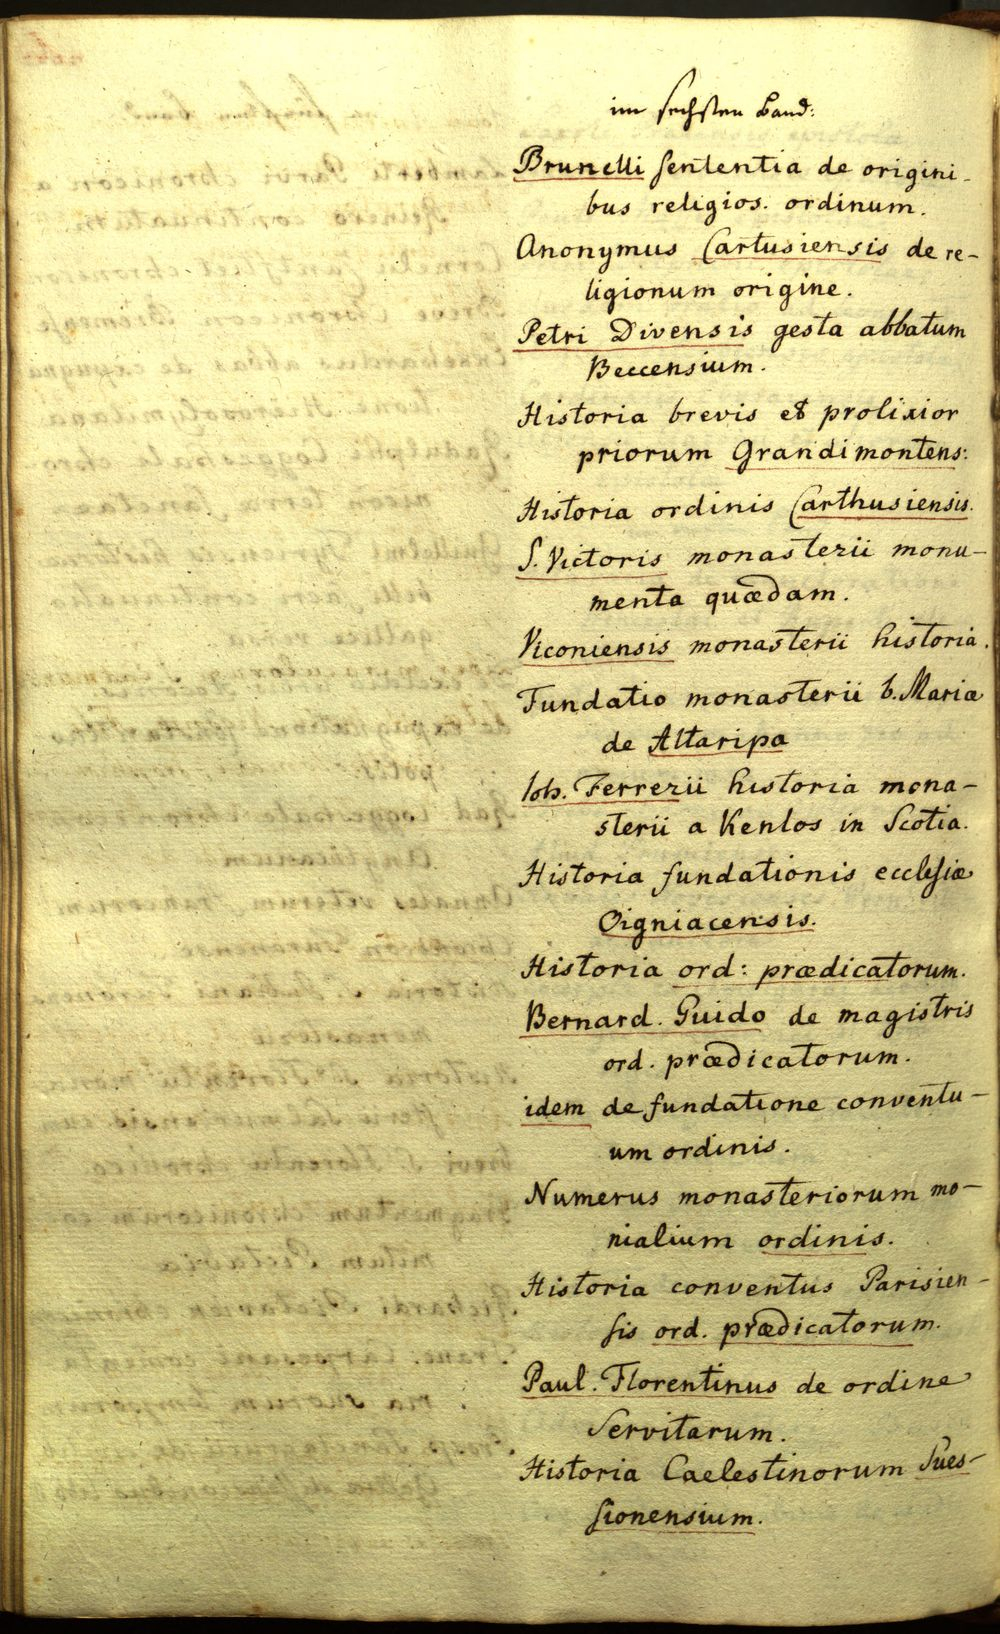 im sechsten Band:
Brunelli sententia de origini-
bus religios. ordinum.
Anonymus Cartusiensis de re-
ligionum origine.
Petri Divensis gesta abbatum
Beccensium.
Historia brevis et prolixior
priorum Grandimontens:
Historia ordinis Carthusiensis.
S. Victoris monasterii monu-
menta quædam.
Viconiensis monasterii historia.
Fundatio monasterii b. Mariæ
de Altaripa
Ioh. Ferrerii historia mona-
sterii a Kenlos in Scotia.
Historia fundationis ecclesiæ
Oigniacensis.
Historia ord: prædicatorum.
Bernard. Guido de magistris
ord. prædicatorum.
idem de fundatione conventu-
um ordinis.
Numerus monasteriorum mo-
nialium ordinis.
Historia conventus Parisien-
sis ord. prædicatorum.
Paul. Florentinus de ordine
Servitarum.
Historia Caelestinorum Sues-
sionensium.